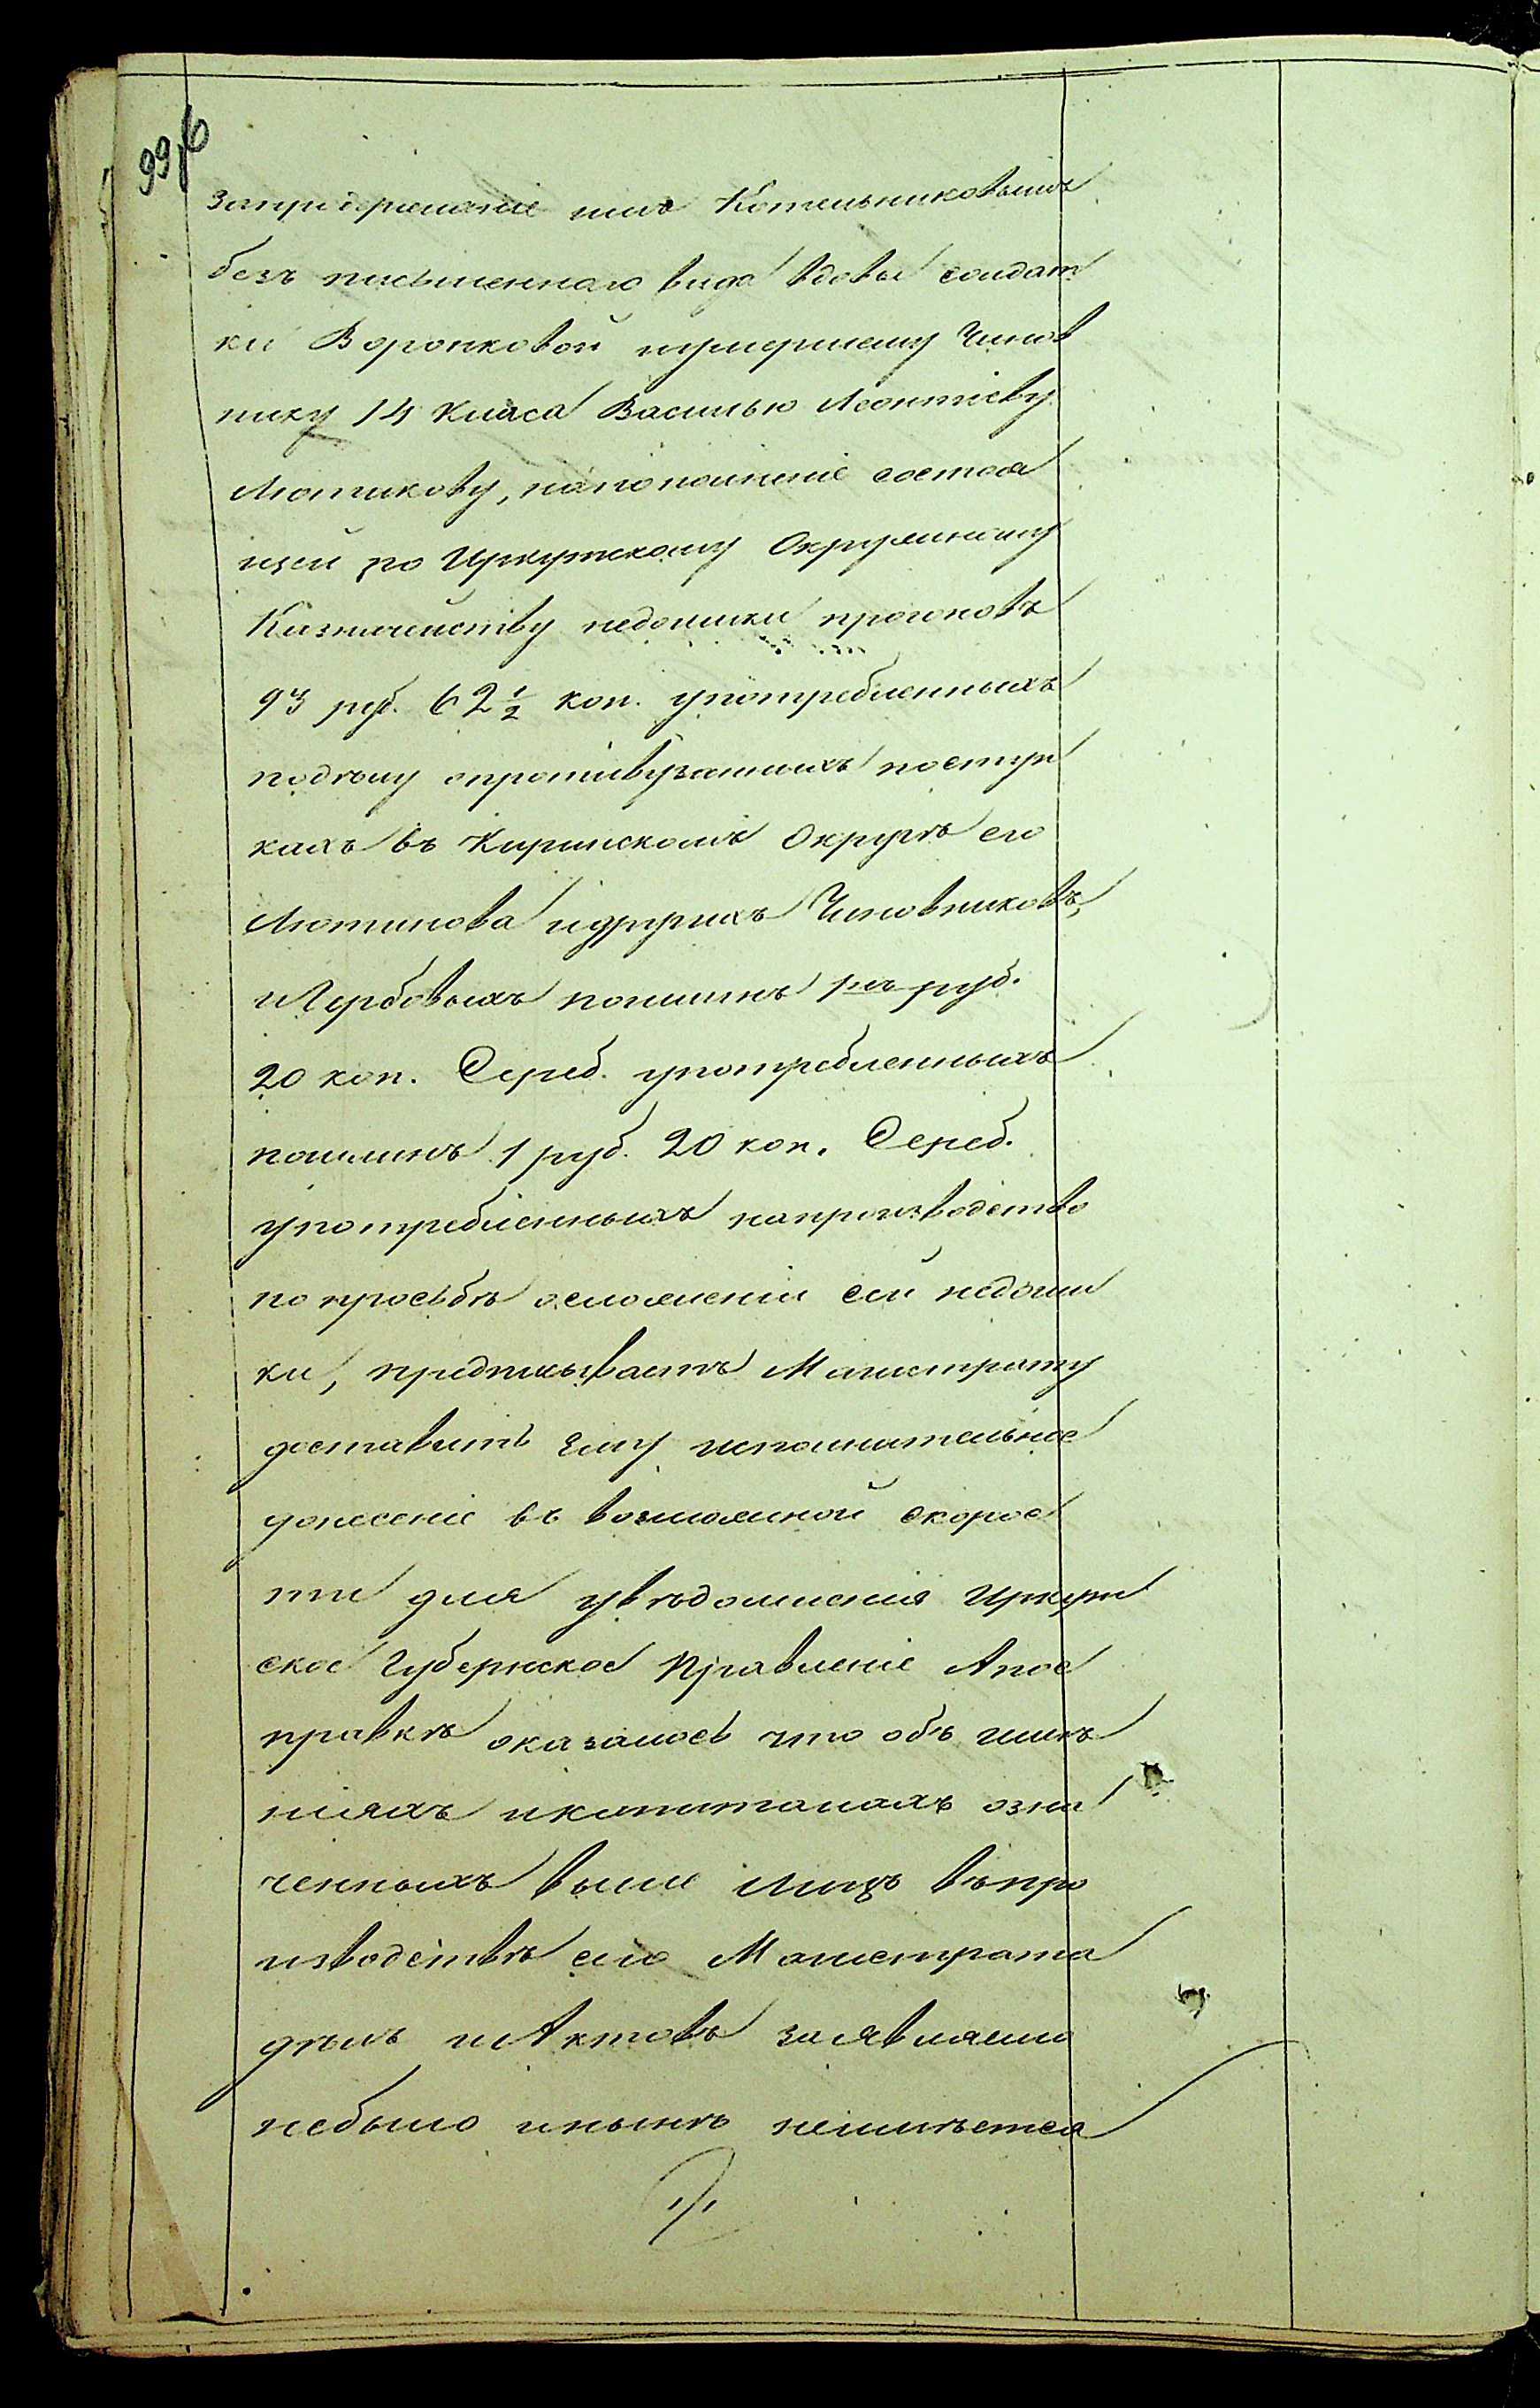 99,б
запридержаніе имъ Котельниковымъ
безъ письменнаго вида вдовы солдат
ки Воропковой иумершему Чинов
нику 14 класа Василью Леонтіеву
Лютикову, напополненіе состоя
щей по Иркутскому Окружному
Казначейству недоимки прогоновъ
93 руб. 62 1/2 коп. употребленныхъ
подѣлу опротивузаконныхъ поступ
кахъ въ Киринскомъ Округѣ его
Лютикова идругихъ Чиновниковъ,
иГербовыхъ пошлинъ руб.
20 коп. Сереб. употребленныхъ
пошлинъ 1 руб. 20 коп. Сереб.
употребленныхъ напроизводство
по просьбѣ осложеніи сей недоим
ки, предписываетъ Магистрату
доставить ему исполнительное
донесеніе въ возможной скорос
ти для увѣдомленія Иркут
ское Губернское Правленіе Апос
правкѣ оказалось что объ имѣ
ніяхъ икапиталахъ озна
ченныхъ выше лицъ въпро
изводствѣ сего Магистрата
дѣлъ иАктовъ заявляемо
небыло инынѣ неимѣется